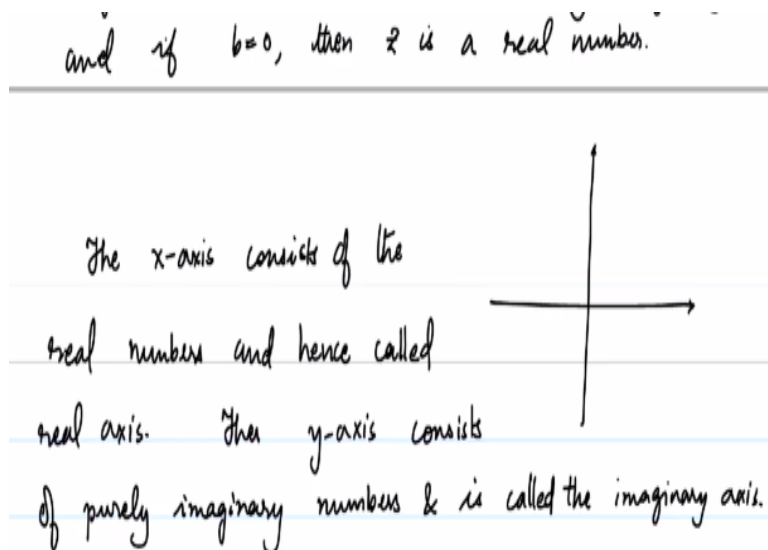 and if b=0, then z is a real number.
The x-axis consists of the
real numbers and hence called
real axis. Ther y-axis consists
of purely imaginary numbers & is called the imaginary axis.